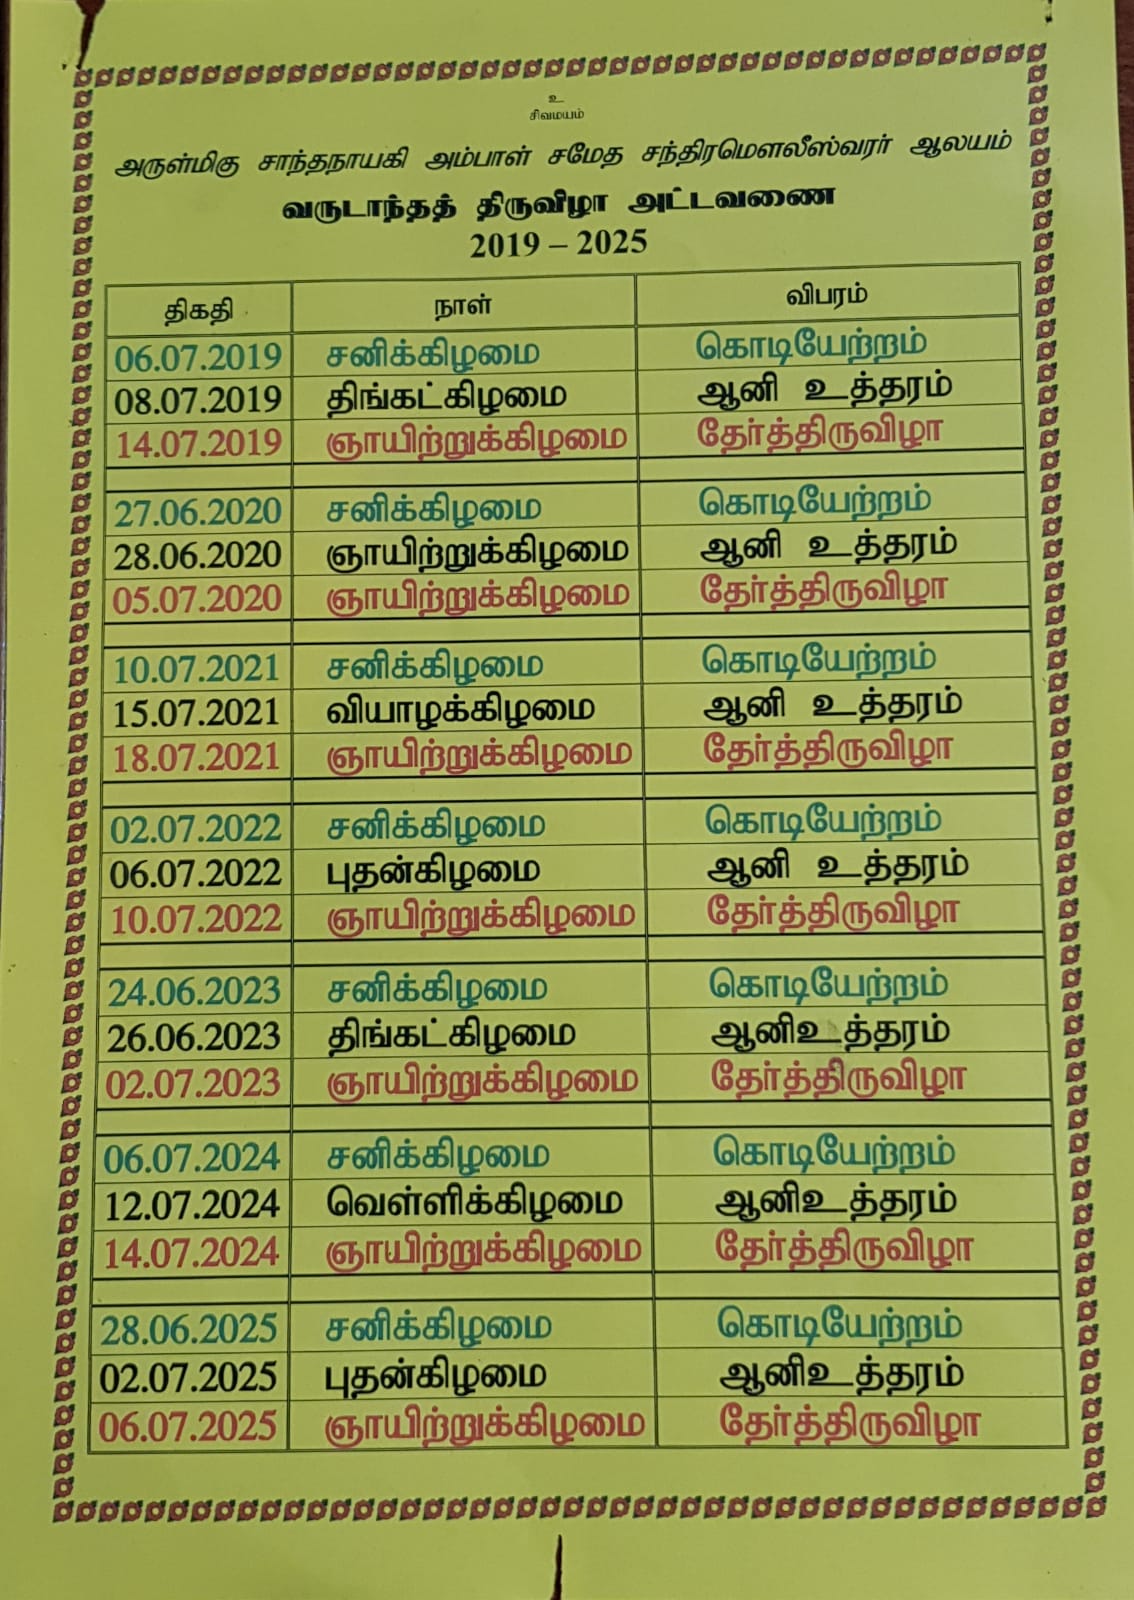 உ
சிவமயம்
அருள்மிகு சாந்தநாயகி அம்பாள் சமேத சந்திரமௌலீஸ்வரர் ஆலயம்
வருடாந்தத் திருவிழா அட்டவணை
2019 – 2025
திகதி நாள் விபரம்
06.07.2019 சனிக்கிழமை கொடியேற்றம்
08.07.2019 திங்கட்கிழமை ஆனி உத்தரம்
14.07.2019 ஞாயிற்றுக்கிழமை தேர்த்திருவிழா
27.06.2020 சனிக்கிழமை கொடியேற்றம்
28.06.2020 ஞாயிற்றுக்கிழமை ஆனி உத்தரம்
05.07.2020 ஞாயிற்றுக்கிழமை தேர்த்திருவிழா
10.07.2021 சனிக்கிழமை கொடியேற்றம்
15.07.2021 வியாழக்கிழமை ஆனி உத்தரம்
18.07.2021 ஞாயிற்றுக்கிழமை தேர்த்திருவிழா
02.07.2022 சனிக்கிழமை கொடியேற்றம்
06.07.2022 புதன்கிழமை ஆனி உத்தரம்
10.07.2022 ஞாயிற்றுக்கிழமை தேர்த்திருவிழா
24.06.2023 சனிக்கிழமை கொடியேற்றம்
26.06.2023 திங்கட்கிழமை ஆனிஉத்தரம்
02.07.2023 ஞாயிற்றுக்கிழமை தேர்த்திருவிழா
06.07.2024 சனிக்கிழமை கொடியேற்றம்
12.07.2024 வெள்ளிக்கிழமை ஆனிஉத்தரம்
14.07.2024 ஞாயிற்றுக்கிழமை தேர்த்திருவிழா
28.06.2025 சனிக்கிழமை கொடியேற்றம்
02.07.2025 புதன்கிழமை ஆனிஉத்தரம்
06.07.2025 ஞாயிற்றுக்கிழமை தேர்த்திருவிழா